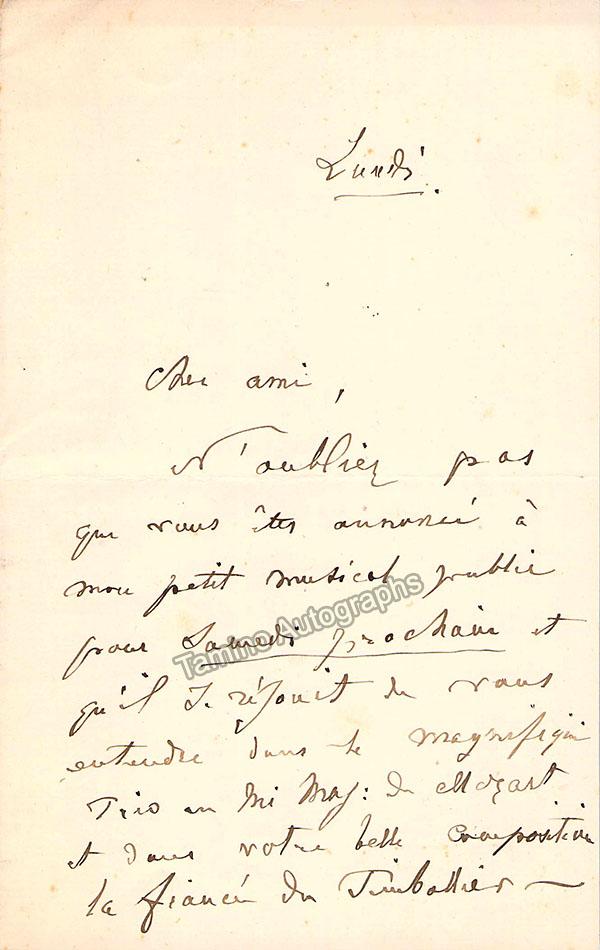 Lundi.
Cher ami,
N'oubliez pas
que vous êtes annoncé à
mon petit musical public
pour Samedi prochain et
qu'il se réjouit de vous
entendre dans le magnifique
Trio en Mi Maj: de Mozart
et dans votre belle composition
la fiancée du Timballier —
Tamino Autographs